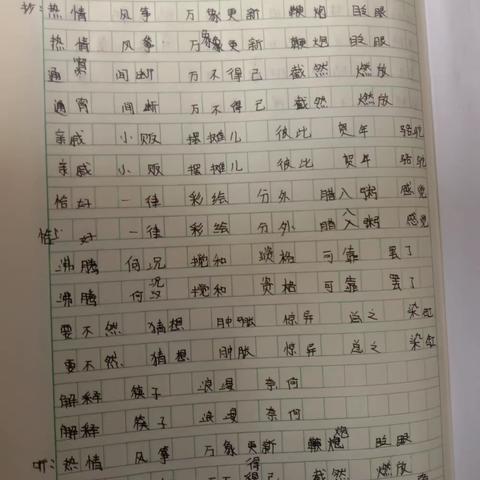 抄:热情 风筝 万象更新 鞭炮 眨眼
热情 风筝 万象更新 鞭炮 眨眼
通宵 间断 万不得已 截然 燃放
通宵 间断 万不得已 截然 燃放
亲戚 小贩 摆摊儿 彼此 贺年 骆驼
亲戚 小贩 摆摊儿 彼此 贺年 骆驼
恰好 一律 彩绘 分外 腊八粥 感觉
恰好 一律 彩绘 分外 腊八粥 感觉
沸腾 何况 搅和 资格 可靠 罢了
沸腾 何况 搅和 资格 可靠 罢了
要不然 猜想 肿胀 惊异 总之 染缸
要不然 猜想 肿胀 惊异 总之 染缸
解释 筷子 浪漫 奈何
解释 筷子 浪漫 奈何
听:热情 风筝 万象更新 鞭炮 眨眼
得己 截然 燃放